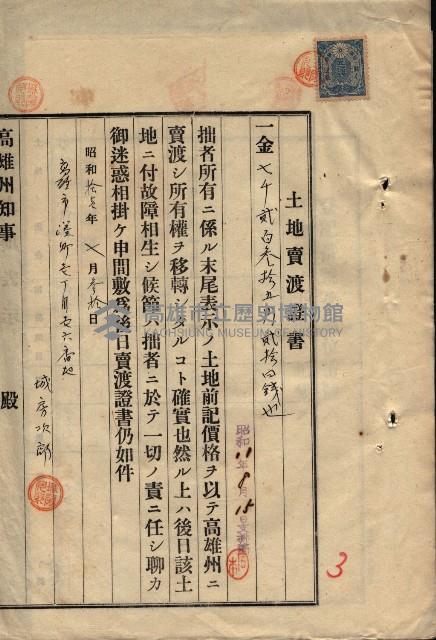 土地賣渡證書
一金七千貳百叁拾五圓貳拾四錢也
拙者所有ニ係ル末尾表示ノ土地前記價格ヲ以テ高雄州ニ
賣渡シ所有權ヲ移轉シタルコト確實也然ル上ハ後日該土
地ニ付故障相生シ候節ハ拙者ニ於テ一切ノ責ニ任シ聊カ
御迷惑相掛ケ申間敷爲後日賣渡證書仍如件
昭和拾壱年 七月叁拾日
高雄市湊町壱丁目六番地
城房次郎
高雄州知事 殿
昭和11年8月18日
3
高雄市立歷史博物館
KAOHSIUNG MUSEUM OF HISTORY